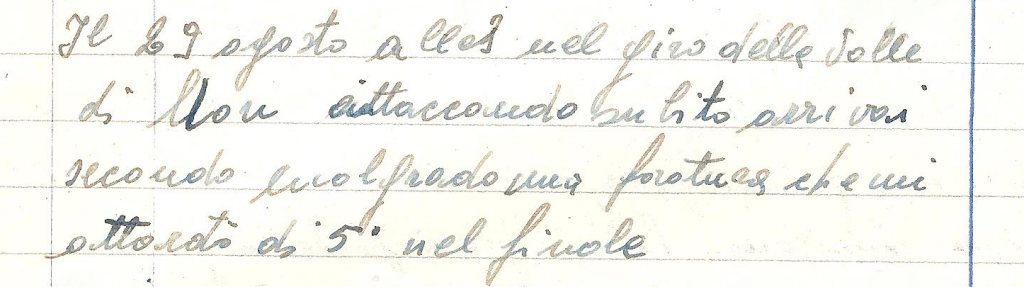 Il 29 agosto alle nel giro della valle
di Non attaccando subito arrivai
secondo malgrado una foratura che mi
attardò di 5' nel finale